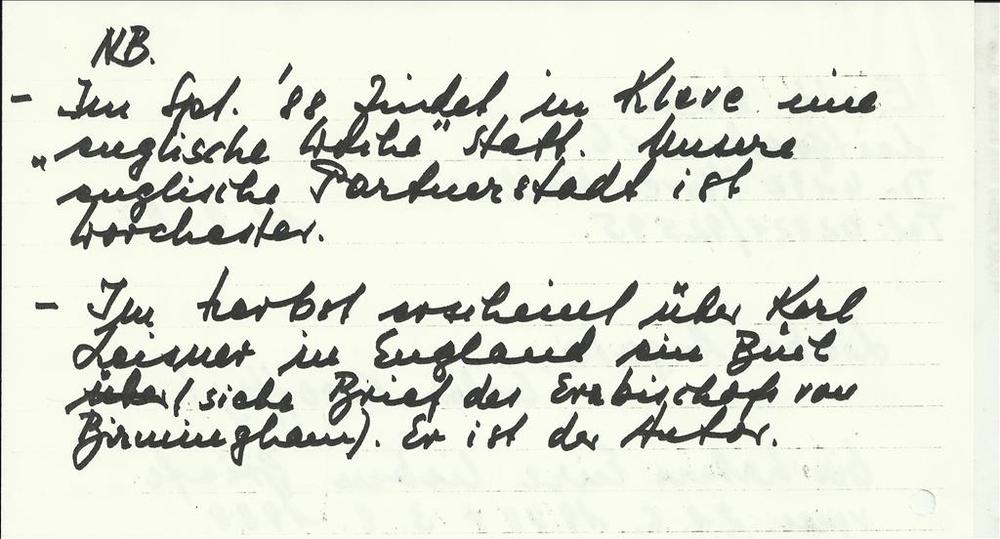 NB.
- Im Spt. '88 findet in Kleve eine
„englische Woche" statt. Unsere
englische Partnerstadt ist
Worchester.
- Im Herbst erscheint über Karl
Leisner in England ein Buch
über (siehe Brief des Erzbischofs von
Birmingham). Er ist der Autor.